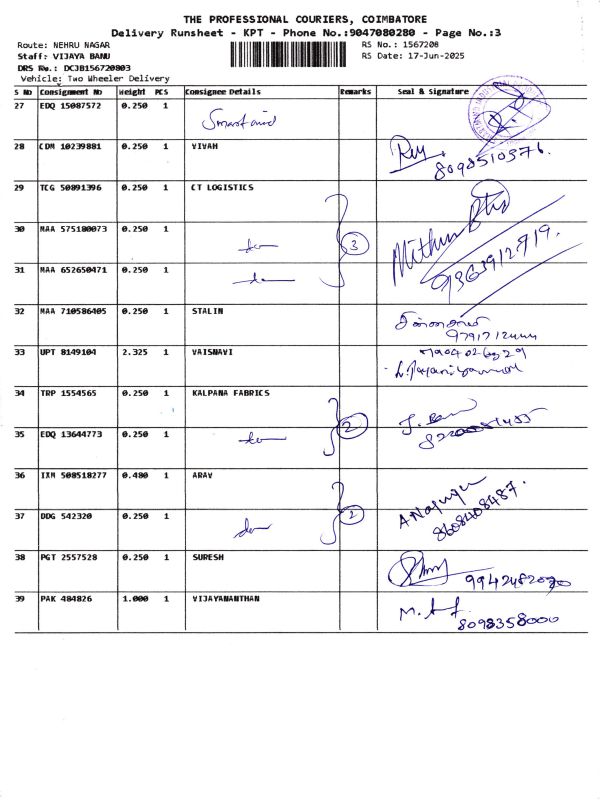 THE PROFESSIONAL COURIERS, COIMBATORE
Delivery Runsheet - KPT - Phone No.:9047080280 - Page No.:3
Route: NEHRU NAGAR
RS No.: 1567208
Staff: VIJAYA BANU
RS Date: 17-Jun-2025
DRS No.: DCJB156720803
Vehicle: Two Wheeler Delivery
S No Consignment No Weight PCS Consignee Details Remarks Seal & Signature
27 EDQ 15087572 0.250 1
28 CDM 10239881 0.250 1 VIVAH
8098510576.
29 TCG 50891396 0.250 1 CT LOGISTICS
30 MAA 575180073 0.250 1 3
Mithun
31 MAA 652650471 0.250 1
9363912919.
32 MAA 710586405 0.250 1 STALIN
33 UPT 8149104 2.325 1 VAISNAVI
34 TRP 1554565 0.250 1 KALPANA FABRICS
35 EDQ 13644773 0.250 1 2
36 IXM 508518277 0.480 1 ARAV
37 DDG 542320 0.250 1 2
8608408487.
38 PGT 2557528 0.250 1 SURESH
39 PAK 484826 1.000 1 VIJAYANANTHAN
8098358000